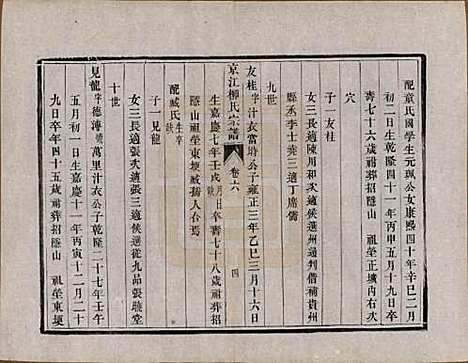 配童氏國學生元珮公女康熙四十年辛巳二月
初一日生乾隆四十一年丙申五月十九日卒
壽七十六歲祔葬招隱山 祖塋正壙內右次
穴
子一友桂
女三長適陳川和次適侯選州通判借補貴州
縣丞李士英三適丁席儒
九世
友桂字汁衣當增公子雍正三年乙巳三月十六日
京江柳氏宗譜 卷六 四
生嘉慶七年壬戌 月 日卒壽七十八歲祔葬招
隱山祖塋東堘臧孺人合焉
配臧氏生卒缺
子一見龍
女三長適張次適張三適侯選從九品張塽堂
十世
見龍字德海號萬里汁衣公子乾隆二十七年壬午
五月初一日生嘉慶十一年丙寅十二月十
九日卒年四十五歲祔葬招隱山 祖塋東堘